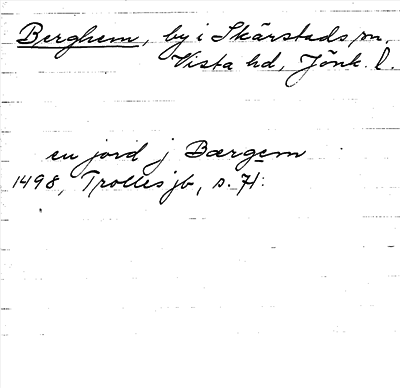 Berghem, by i Skärstads sn,
Vista hd, Jönk. l.
en jord j Bærgem
1498, Trolles jb, s. 71.